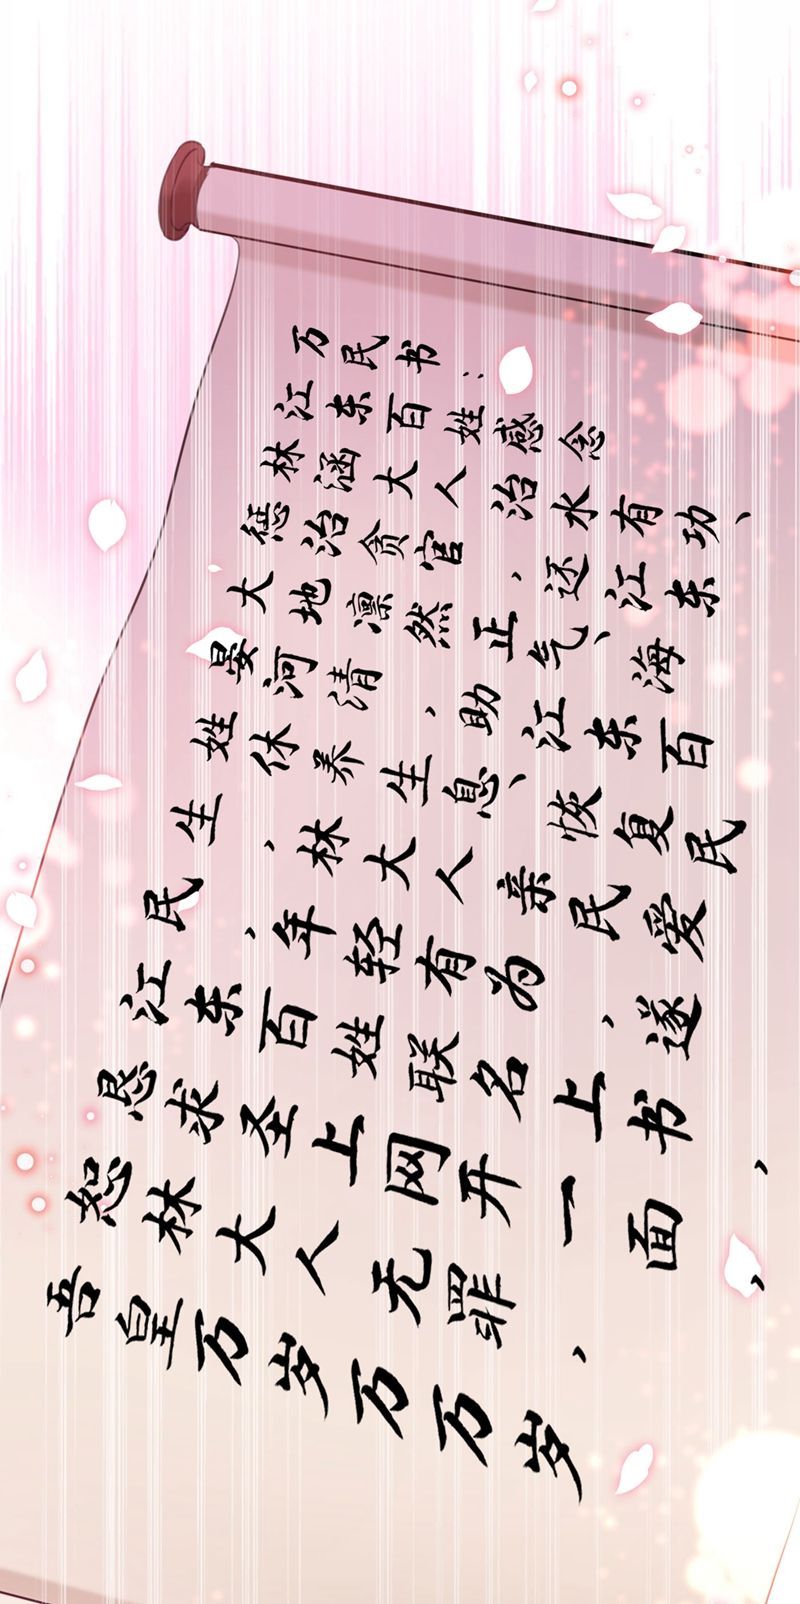 万民书：
江东百姓感念
林涵大人治水有功、
惩治贪官，还江东
大地凛然正气、海
晏河清，助江东百
姓休养生息、恢复民
生，林大人亲民爱
民，年轻有为，遂
江东百姓联名上书，
恳求圣上网开一面，
恕林大人无罪，
吾皇万岁万万岁